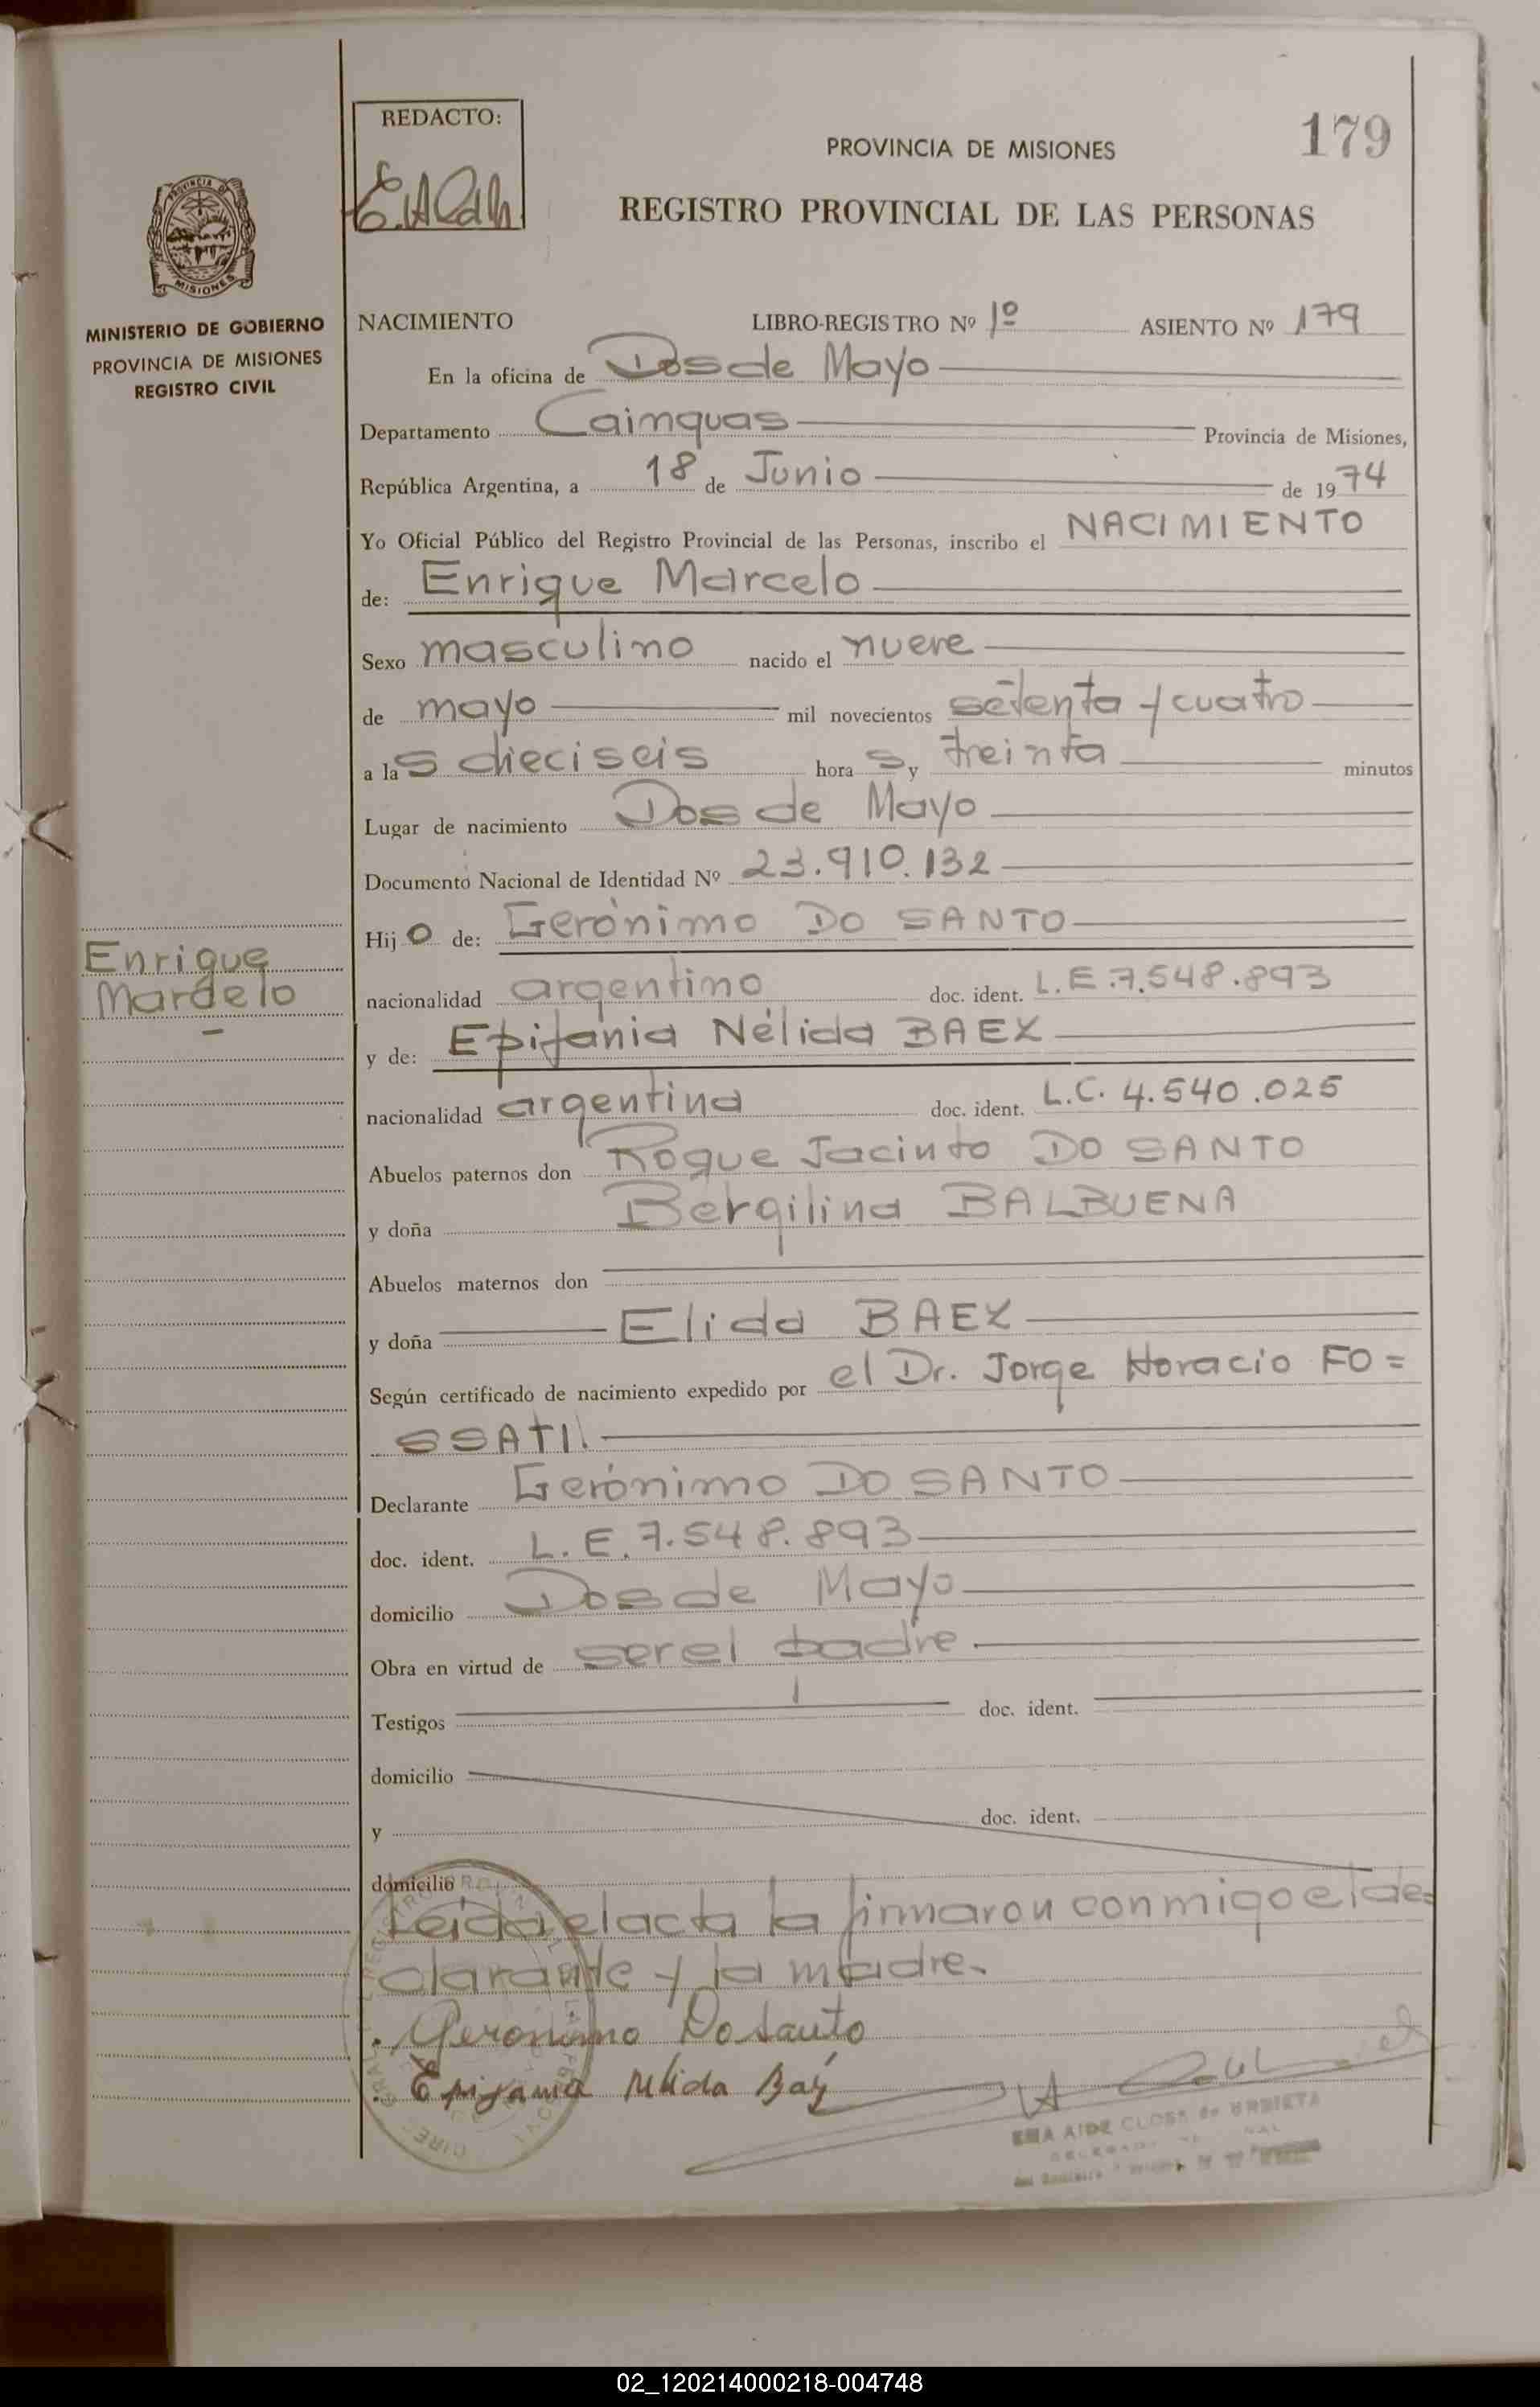 REDACTO:
179
PROVINCIA DE MISIONES
REGISTRO PROVINCIAL DE LAS PERSONAS
MISIONES
MINISTERIO DE GOBIERNO
PROVINCIA DE MISIONES
REGISTRO CIVIL
NACIMIENTO LIBRO-REGISTRO Nº 1º ASIENTO Nº 179
En la oficina de Dos de Mayo
Departamento Cainquas Provincia de Misiones,
República Argentina, a 18 de Junio de 1974
Yo Oficial Público del Registro Provincial de las Personas, inscribo el NACIMIENTO
de: Enrique Marcelo
Sexo masculino nacido el nueve
de mayo mil novecientos setenta y cuatro
a las dieciseis horas y treinta minutos
Lugar de nacimiento Dos de Mayo
Documento Nacional de Identidad Nº 23.910.132
Enrique
Marcelo
Hijo de: Gerónimo DO SANTO
nacionalidad argentino doc. ident. L.E.7.548.893
y de: Epifania Nélida BAEZ
nacionalidad argentina doc. ident. L.C. 4.540.025
Abuelos paternos don Roque Jacinto DO SANTO
y doña Bergilina BALBUENA
Abuelos maternos don
y doña Elida BAEZ
Según certificado de nacimiento expedido por el Dr. Jorge Horacio FO=
SSATI.
Declarante Gerónimo DO SANTO
doc. ident. L.E.7.548.893
domicilio Dos de Mayo
Obra en virtud de ser el padre.
Testigos doc. ident.
domicilio
y doc. ident.
domicilio
Leida el acta la firmaron conmigo el de=
clarante y la madre.
Geronimo Do Santo
Epifania Nélida Baez
02_120214000218-004748